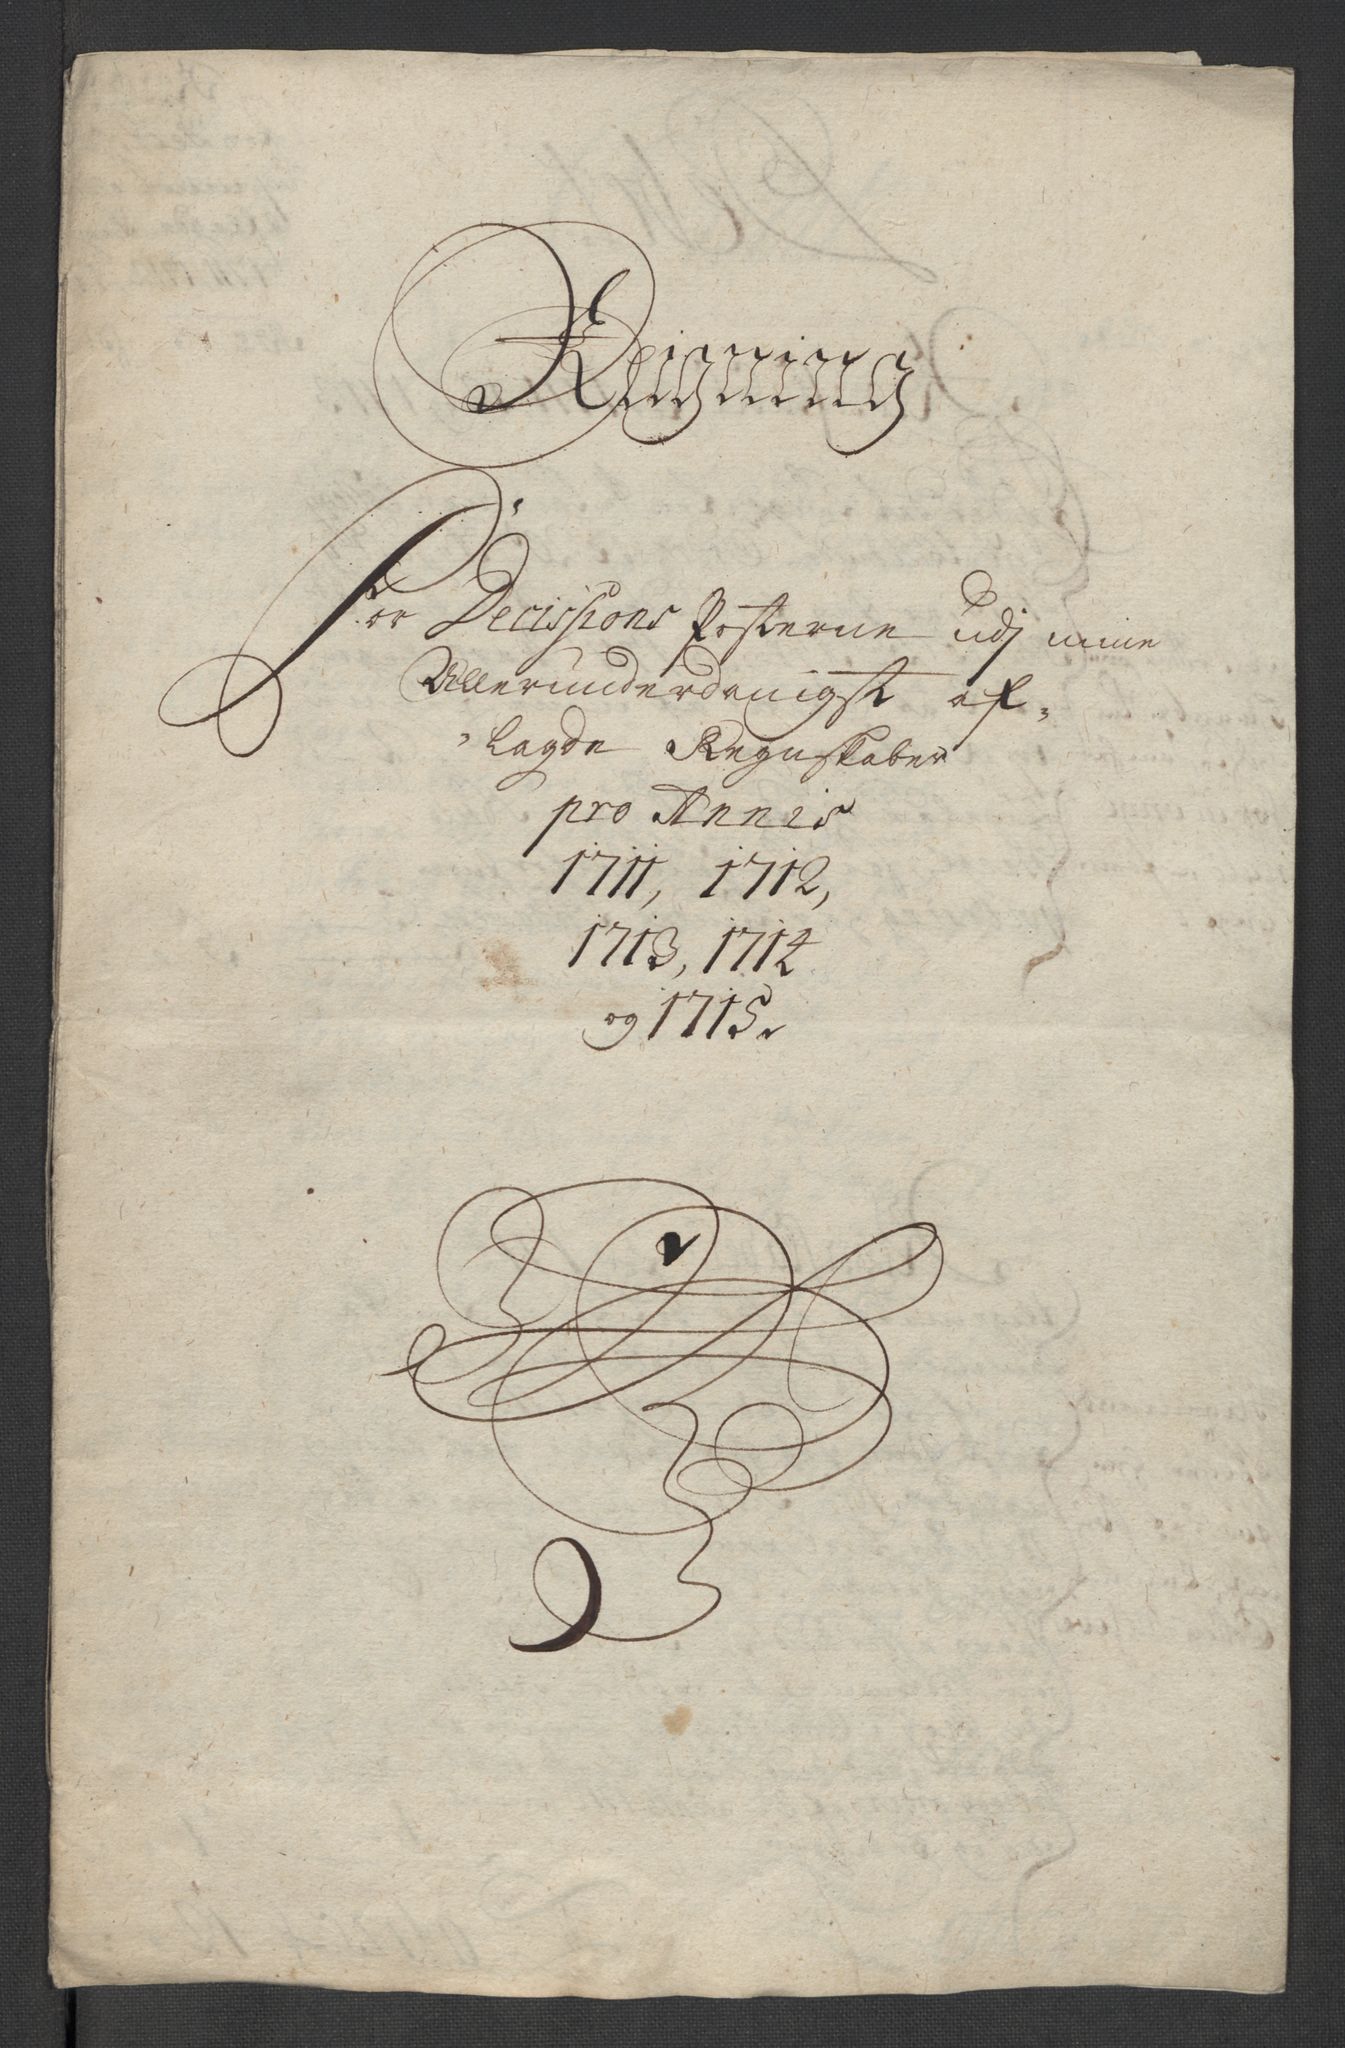 Reigning
For Decissions Posterne udj mine
Allerunderdanigst af-
lagde Regnskaber
pro Annis
1711, 1712,
1713, 1714
og 1715.